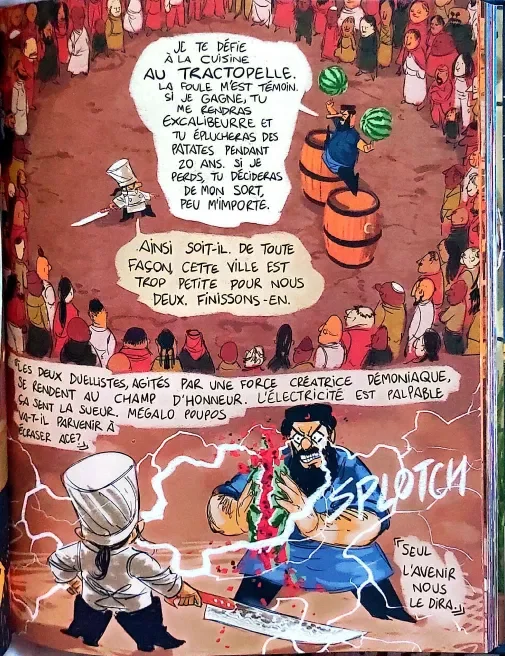 JE TE DÉFIE
À LA CUISINE
AU TRACTOPELLE.
LA FOULE M'EST TÉMOIN.
SI JE GAGNE, TU
ME RENDRAS
EXCALIBEURRE ET
TU ÉPLUCHERAS DES
PATATES PENDANT
20 ANS. SI JE
PERDS, TU DÉCIDERAS
DE MON SORT,
PEU M'IMPORTE.
AINSI SOIT-IL. DE TOUTE
FAÇON, CETTE VILLE EST
TROP PETITE POUR NOUS
DEUX. FINISSONS-EN.
"LES DEUX DUELLISTES, AGITÉS PAR UNE FORCE CRÉATRICE DÉMONIAQUE,
SE RENDENT AU CHAMP D'HONNEUR. L'ÉLECTRICITÉ EST PALPABLE
ÇA SENT LA SUEUR. MÉGALO POUPOS
VA-T-IL PARVENIR À
ÉCRASER ACE?"
SPLOTCH
"SEUL
L'AVENIR
NOUS
LE DIRA."